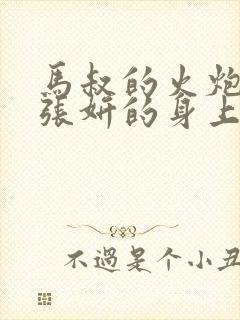 馬叔的火炮
張妍的身上
不過是个小丑